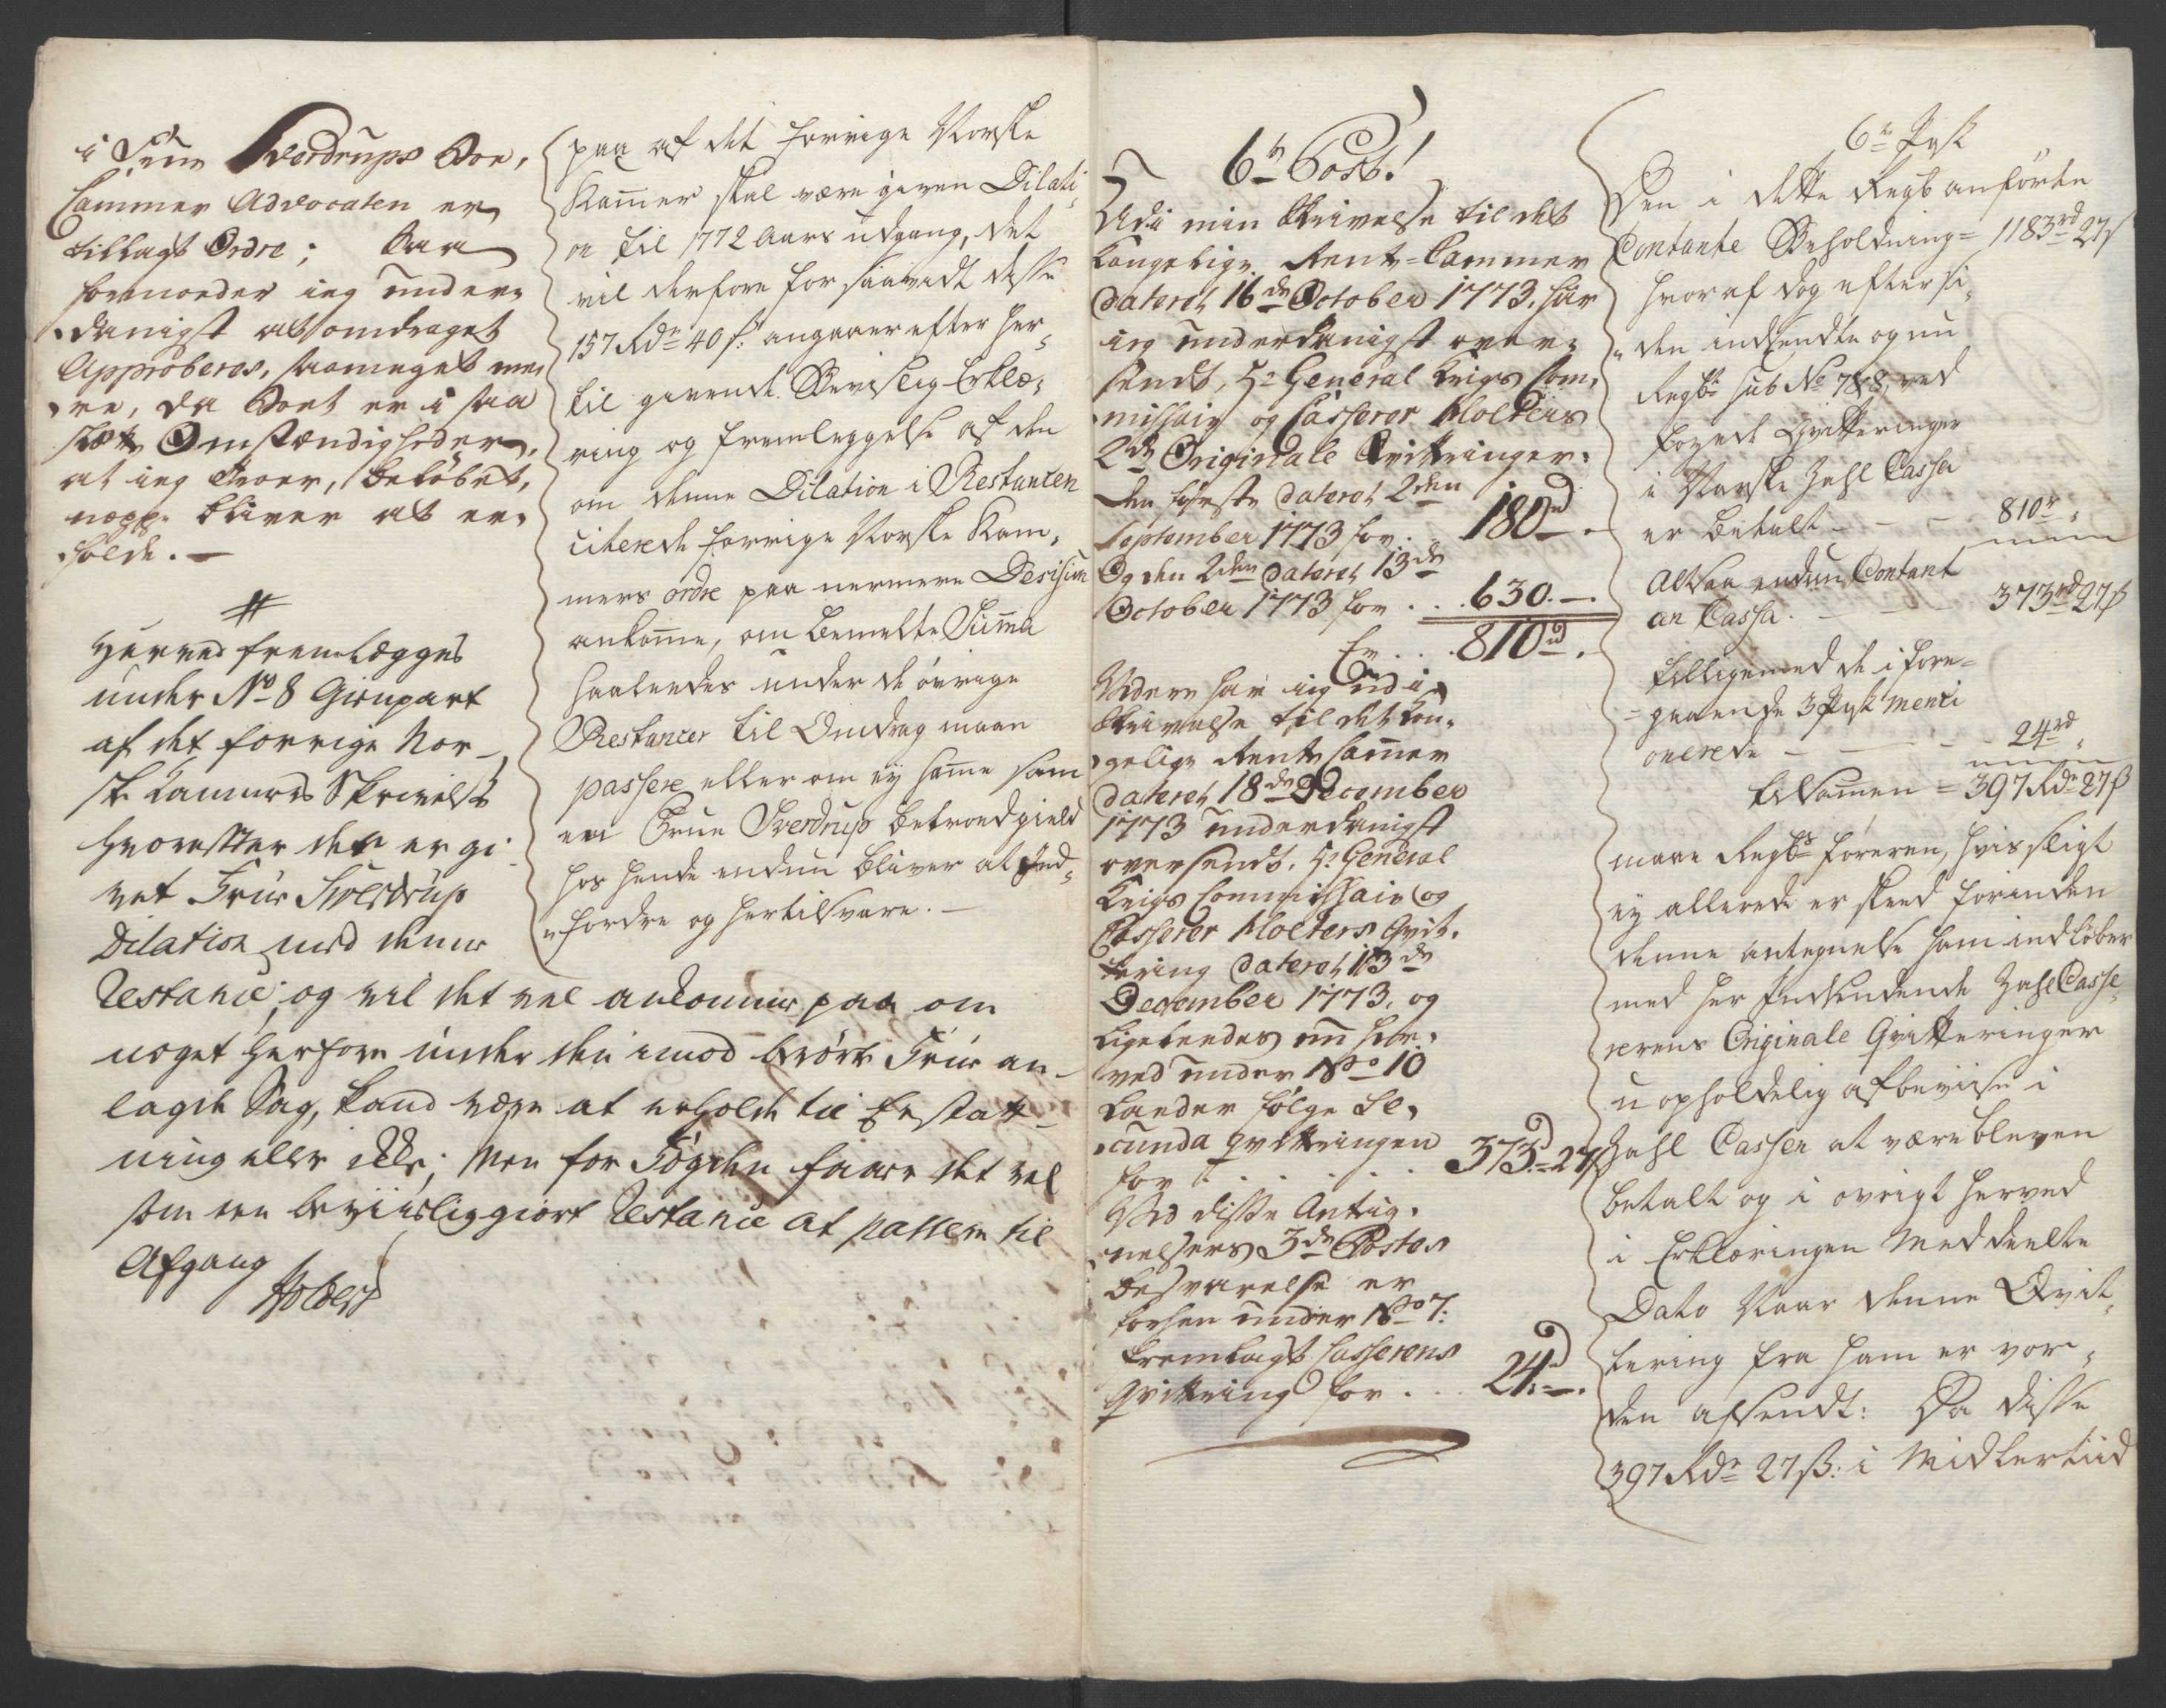 i Frue Sverdrups Boe,
Cammer Advocaten er
tillagt Ordre; Saa
formoeder ieg under-
danigst at omdraget
Approberes, saameget mee-
re, da Boet er i saa
slætte Omstændigheder,
at ieg troer, beløbet,
neppe bliver at er-
holde. —
#
Herved fremlægges
under No 8 Gienpart
af det forrige Nor-
ske Kammers Skrivelse
hvorefter der er gi-
vet Frue Sverdrup
Dilation med denne
Restance, og vil det vel ankomme paa om
noget herfore under den imod berørte Frue an-
lagde Sag, kand være at erholde til Erstatt-
ning eller ikke; Men for Fogden faaer det vel
som en beviisliggiort Restance at passere til
Afgang
Holbers
paa af det forrige Norske
Kammer skal være given Dilati-
on til 1772 Aars udgang, det
vil derfore forsaavidt disse
157 Rdr 40 s: angaaer efter her-
til givende Beviislig Erklæ-
ring og fremleggelse af den
om denne Dilation i Restancen
citerede forrige Norske Kam-
mers ordre paa nermere Desision
ankomme, om bemelte Summa
saaledes under de øvrige
Restancer til Omdrag maae
passere eller om ey samme som
en Frue Sverdrup betroed gield
hos hende endnu bliver at Ind-
fordre og hertilsvare. —
6te Post!
Udi min Skrivelse til det
Kongelige Rente-Cammer
dateret 16de October 1773. har
ieg underdanigst over-
sendt, Hr General Krigs Com-
missair og Casserer Kloeders
2de Originale Qvitteringer.
den første dateret 2den
September 1773 for . 180rd —.
Og den 2den dateret 13de
October 1773 for . . . 630. —.
Er . . . 810rd .
Videre har ieg udi
Skrivelse til det Kon-
gelige Rente Cammer
dateret 18de December
1773 underdanigst
oversendt, Hr General
Krigs Commissair og
Casserer Kloeders Qvit-
tering dateret 13de
December 1773, og
ligeleedes nu her-
ved under No 10
lader følge Se-
cunda qvitteringen
for . . . . . 373rd = 27s
Ved disse Anteig-
nelsers 3de Postes
besvarelse er
forhen under No 7.
fremlagt Casserens
Qvittering for . . . 24rd —.
6te Post
Den i dette Regb anførte
Contante Beholdning = 1183rd 27s
hvoraf dog efter si-
den indsendte og nu
Regb sub No 7&8, ved
føyede Qvitteringer
i Norske Zahl Cassa
er betalt — — — 810r „
Altsaa endnu Contant
an Cassa. — — 373rd 27s
tilligemed de i fore-
gaaende 3 Post menti-
onerede — — — 24rd „
tilsamen = 397 Rdr 27s
maae Regbs føreren, hvis sligt
ey allerede er skeed forinden
denne antegnelse ham indløber
med her Indsendende Zahl Casse-
rerens Originale Qvitteringer
uopholdelig afbeviise i
Zahl Cassen at være bleven
betalt og i øvrigt herved
i Erklæringen Meddeelte
Dato Naar denne Qvit-
tering fra ham er vor-
den afsendt: Da disse
397 Rdr 27 s: i Midlertiid